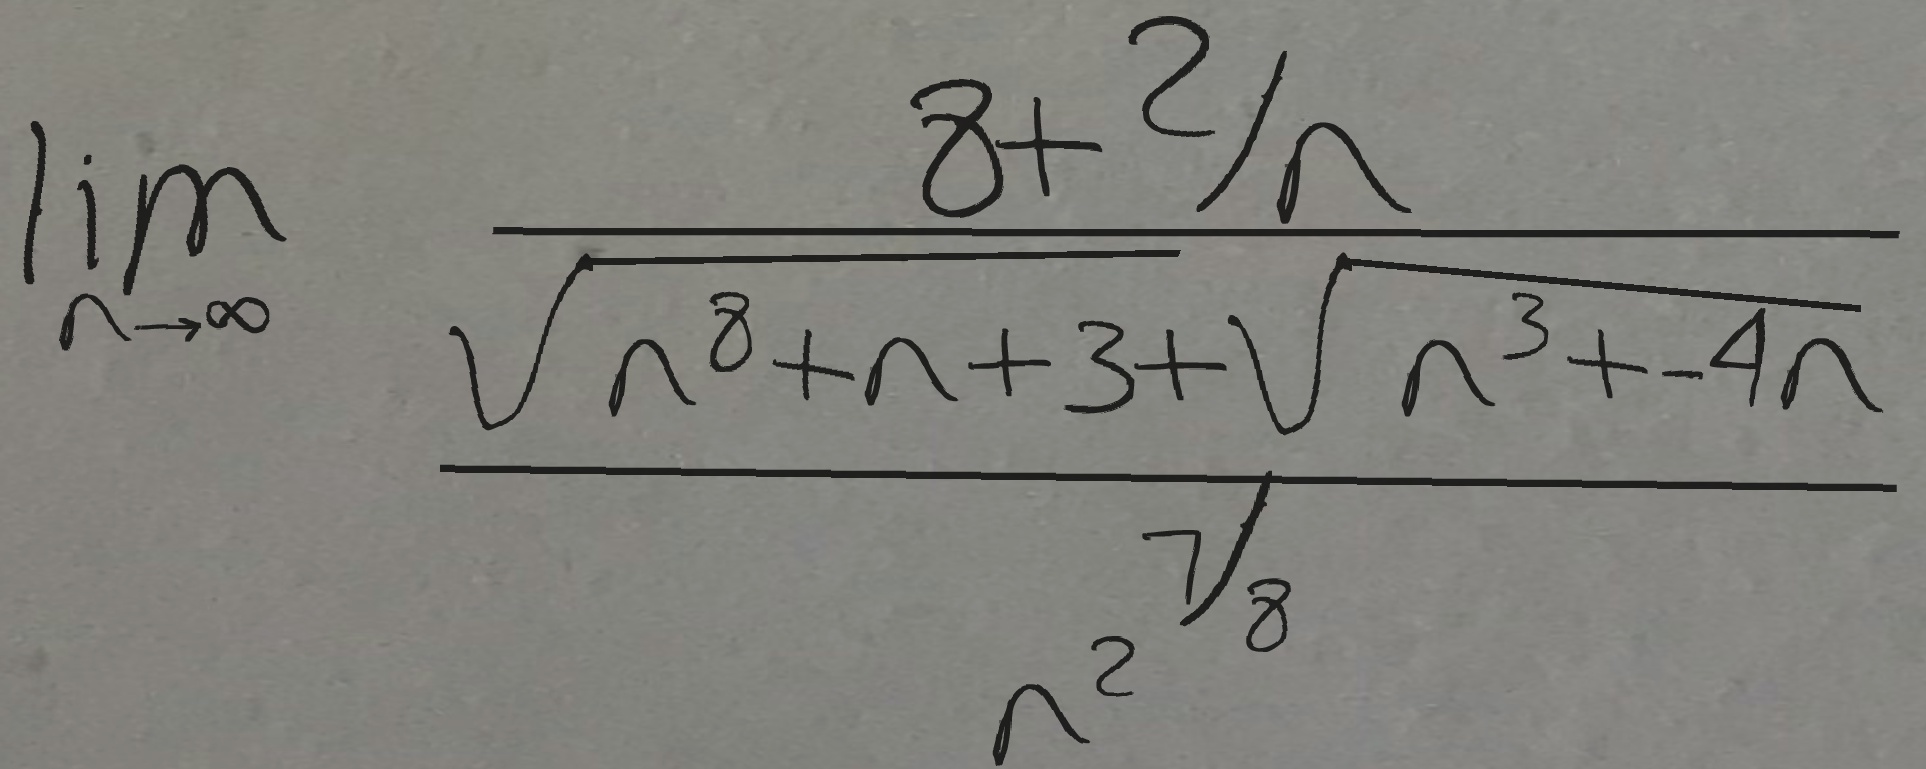 lim n→∞ \frac{8+2/n}{\frac{\sqrt{n^8+n+3}+\sqrt{n^3+-4n}}{n^{2^{7/8}}}}